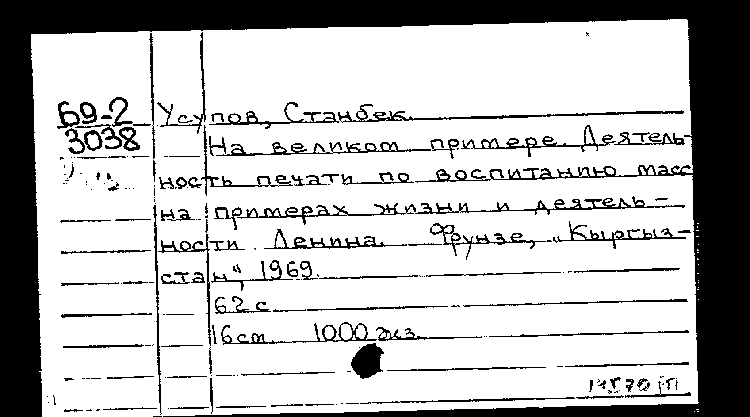 69-2
3038
Усупов, Станбек.
На великом примере. Деятель-
ность печати по воспитанию масс
на примерах жизни и деятель-
ности Ленина. Фрунзе, "Кыргыз-
стан", 1969.
62 с.
16 см. 1000 экз.